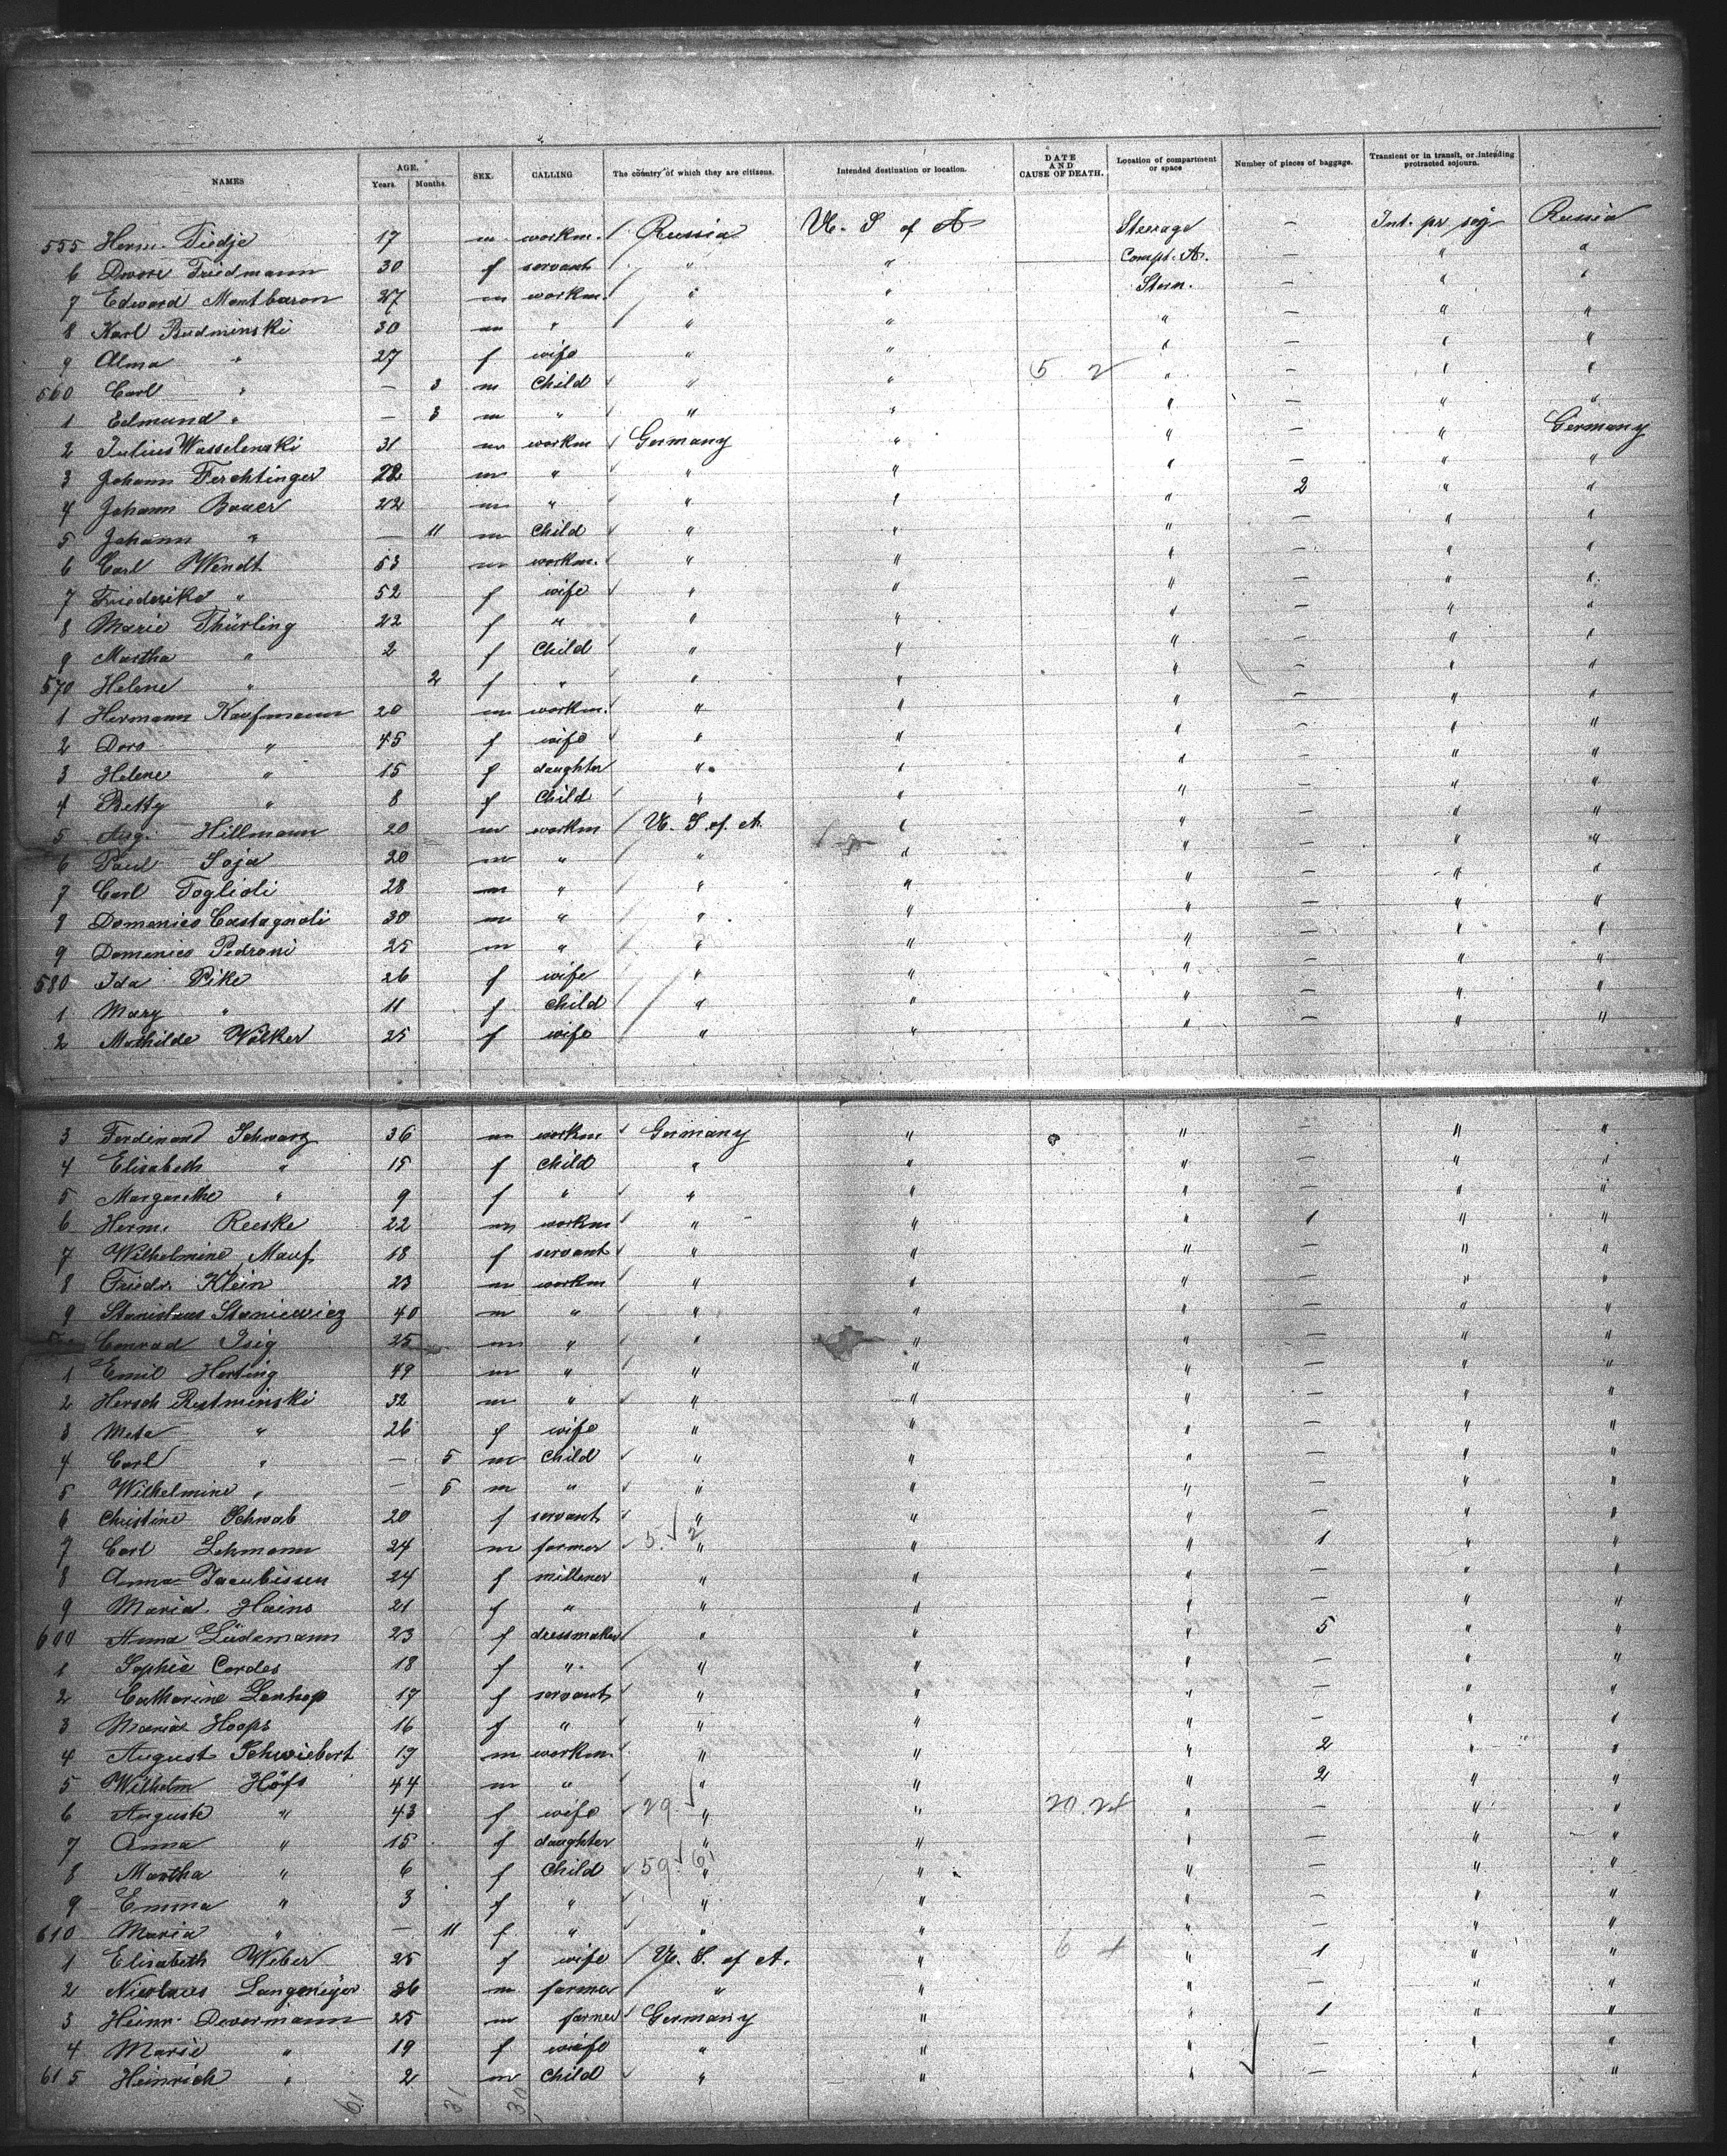 NAMES AGE. Years. Months. SEX. CALLING The country of which they are citizens. Intended destination or location. DATE AND CAUSE OF DEATH. Location of compartment or space Number of pieces of baggage. Transient or in transit, or intending protracted sojourn.
555 Herm. Tiedje 17 m workm. Russia U. S of A Steerage — Int. pr soj Russia
6 Dwore Friedmann 30 f servant " " Compt. A. — " "
7 Edward Montbaron 27 m workm. " " Stern. — " "
8 Karl Budminski 30 m " " " " — " "
9 Alma " 27 f wife " " " — " "
560 Carl " — 3 m Child " " 5 2 " — " "
1 Edmund " — 3 m " " " " — " "
2 Julius Wasselenski 31 m workm Germany " " — " Germany
3 Johann Ferchtinger 22 m " " " " — " "
4 Johann Bauer 22 m " " " " 2 " "
5 Johann " — 11 m Child " " " — " "
6 Carl Wendt 53 m workm. " " " — " "
7 Friederike " 52 f wife " " " — " "
8 Marie Thürling 22 f " " " " — " "
9 Martha " 2 f Child " " " — " "
570 Helene " 2 f " " " " — " "
1 Hermann Kaufmann 20 m workm. " " " — " "
2 Dora " 45 f wife " " " — " "
3 Helene " 15 f daughter " " " — " "
4 Betty " 8 f Child " " " — " "
5 Aug. Hillmann 20 m workm U. S. of A. " " — " "
6 Paul Soja 20 m " " " " — " "
7 Carl Toglioli 28 m " " " " — " "
8 Domenico Castagnoli 30 m " " " " — " "
9 Domenico Pedroni 25 m " " " " — " "
580 Ida Pike 26 f wife " " " — " "
1 Mary " 11 f Child " " " — " "
2 Mathilde Wälker 25 f wife " " " — " "
3 Ferdinand Schwarz 36 m workm Germany " " — " "
4 Elisabeth " 15 f Child " " " — " "
5 Margarethe " 9 f " " " " — " "
6 Herm. Reeske 22 m workm " " " 1 " "
7 Wilhelmine Mauf 18 f servant " " " — " "
8 Friedr. Klein 23 m workm " " " — " "
9 Stanislaus Staniewicz 40 m " " " " — " "
Conrad Isig 25 m " " " " — " "
1 Emil Herting 49 m " " " " — " "
2 Hersch Rustminski 32 m " " " " — " "
3 Meta " 26 f wife " " " — " "
4 Carl " — 5 m Child " " " — " "
5 Wilhelmine " — 5 m " " " " — " "
6 Christine Schwab 20 f servant " " " — " "
7 Carl Lehmann 24 m farmer 3. 2 " " " 1 " "
8 Anna Jacubissen 24 f millener " " " — " "
9 Maria Hains 21 f " " " " — " "
600 Anna Lüdemann 23 f dressmaker " " " 5 " "
1 Sophie Cordes 18 f " " " " — " "
2 Catharine Lenhop 17 f servant " " " — " "
3 Maria Hoops 16 f " " " " — " "
4 August Schwiebert 19 m workm " " " 2 " "
5 Wilhelm Höfs 44 m " " " " 2 " "
6 Auguste " 43 f wife 29 " " 20. 24 " — " "
7 Anna " 15 f daughter " " " — " "
8 Martha " 6 f Child 59 6 " " " — " "
9 Emma " 3 f " " " " — " "
610 Maria " — 11 f " " " " — " "
1 Elisabeth Weber 25 f wife U. S. of A. " 6 4 " 1 " "
2 Nicolaus Langmeijer 36 m farmer " " " — " "
3 Heinr. Devermann 25 m farmer Germany " " 1 " "
4 Marie " 19 f wife " " " — " "
615 Heinrich " 2 m Child " " " — " "
61 31 30